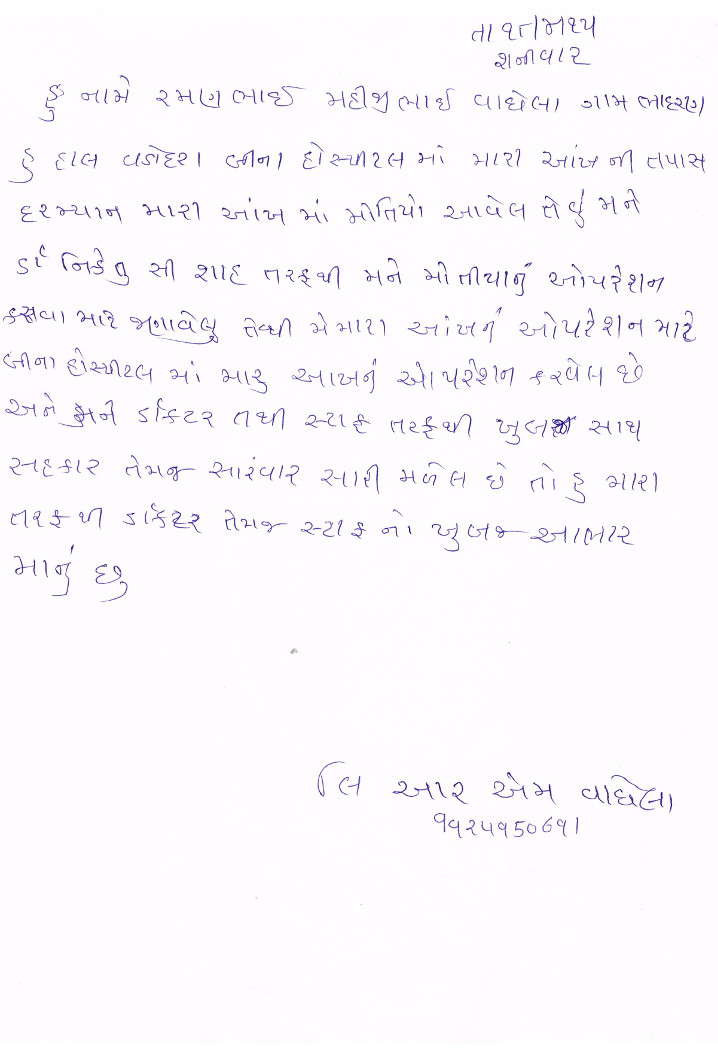 શનીવાર
હું નામે રમણભાઈ મહીજીભાઈ વાઘેલા ગામ ભાદરણ
હુ હાલ વડોદરા બીના હોસ્પીટલ માં મારી આંખ ની તપાસ
દરમ્યાન મારી આંખ માં મોતિયો આવેલ તેવું મને
ડૉ નિકેતુ સી શાહ તરફથી મને મોતીયાનું ઓપરેશન
કરાવવા માટે જણાવેલુ તેથી મે મારા આંખનું ઓપરેશન માટે
બીના હોસ્પીટલ માં મારૂ આખનું ઓપરેશન કરવેલ છે
અને મને ડૉકટર તથી સ્ટાફ તરફથી ખુલજ સાથ
સહકાર તેમજ સારંવાર સારી મળેલ છે તો હુ મારા
તરફથી ડૉકટર તેમજ સ્ટાફ નો ખુબજ આભાર
માનું છુ
લિ આર એમ વાઘેલા